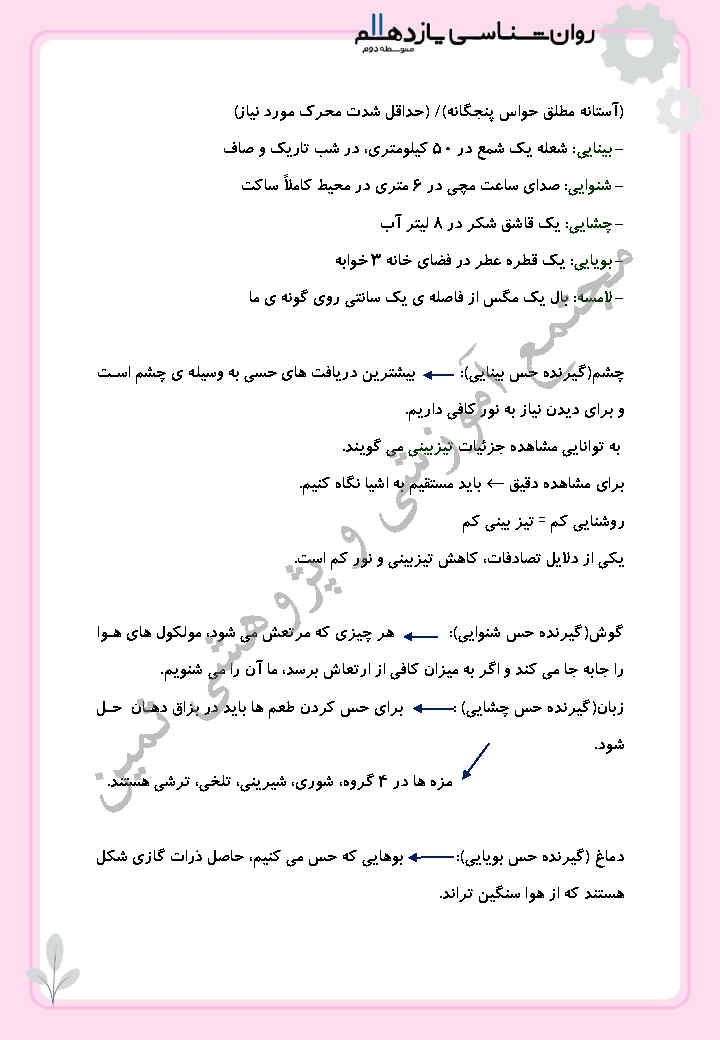 روان‌شناسی یازدهم
متوسطه دوم
(آستانه مطلق حواس پنجگانه)/ (حداقل شدت محرک مورد نیاز)
– بینایی: شعله یک شمع در ۵۰ کیلومتری، در شب تاریک و صاف
– شنوایی: صدای ساعت مچی در ۶ متری در محیط کاملاً ساکت
– چشایی: یک قاشق شکر در ۸ لیتر آب
– بویایی: یک قطره عطر در فضای خانه ۳ خوابه
– لامسه: بال یک مگس از فاصله ی یک سانتی روی گونه ی ما
چشم(گیرنده حس بینایی): ← بیشترین دریافت های حسی به وسیله ی چشم است
و برای دیدن نیاز به نور کافی داریم.
به توانایی مشاهده جزئیات تیزبینی می گویند.
برای مشاهده دقیق ← باید مستقیم به اشیا نگاه کنیم.
روشنایی کم = تیز بینی کم
یکی از دلایل تصادفات، کاهش تیزبینی و نور کم است.
گوش(گیرنده حس شنوایی): ← هر چیزی که مرتعش می شود، مولکول های هوا
را جابه جا می کند و اگر به میزان کافی از ارتعاش برسد، ما آن را می شنویم.
زبان(گیرنده حس چشایی) : ← برای حس کردن طعم ها باید در بزاق دهان حل
شود.
مزه ها در ۴ گروه، شوری، شیرینی، تلخی، ترشی هستند.
دماغ (گیرنده حس بویایی): ← بوهایی که حس می کنیم، حاصل ذرات گازی شکل
هستند که از هوا سنگین تراند.
مجتمع آموزشی و پژوهشی ثمین